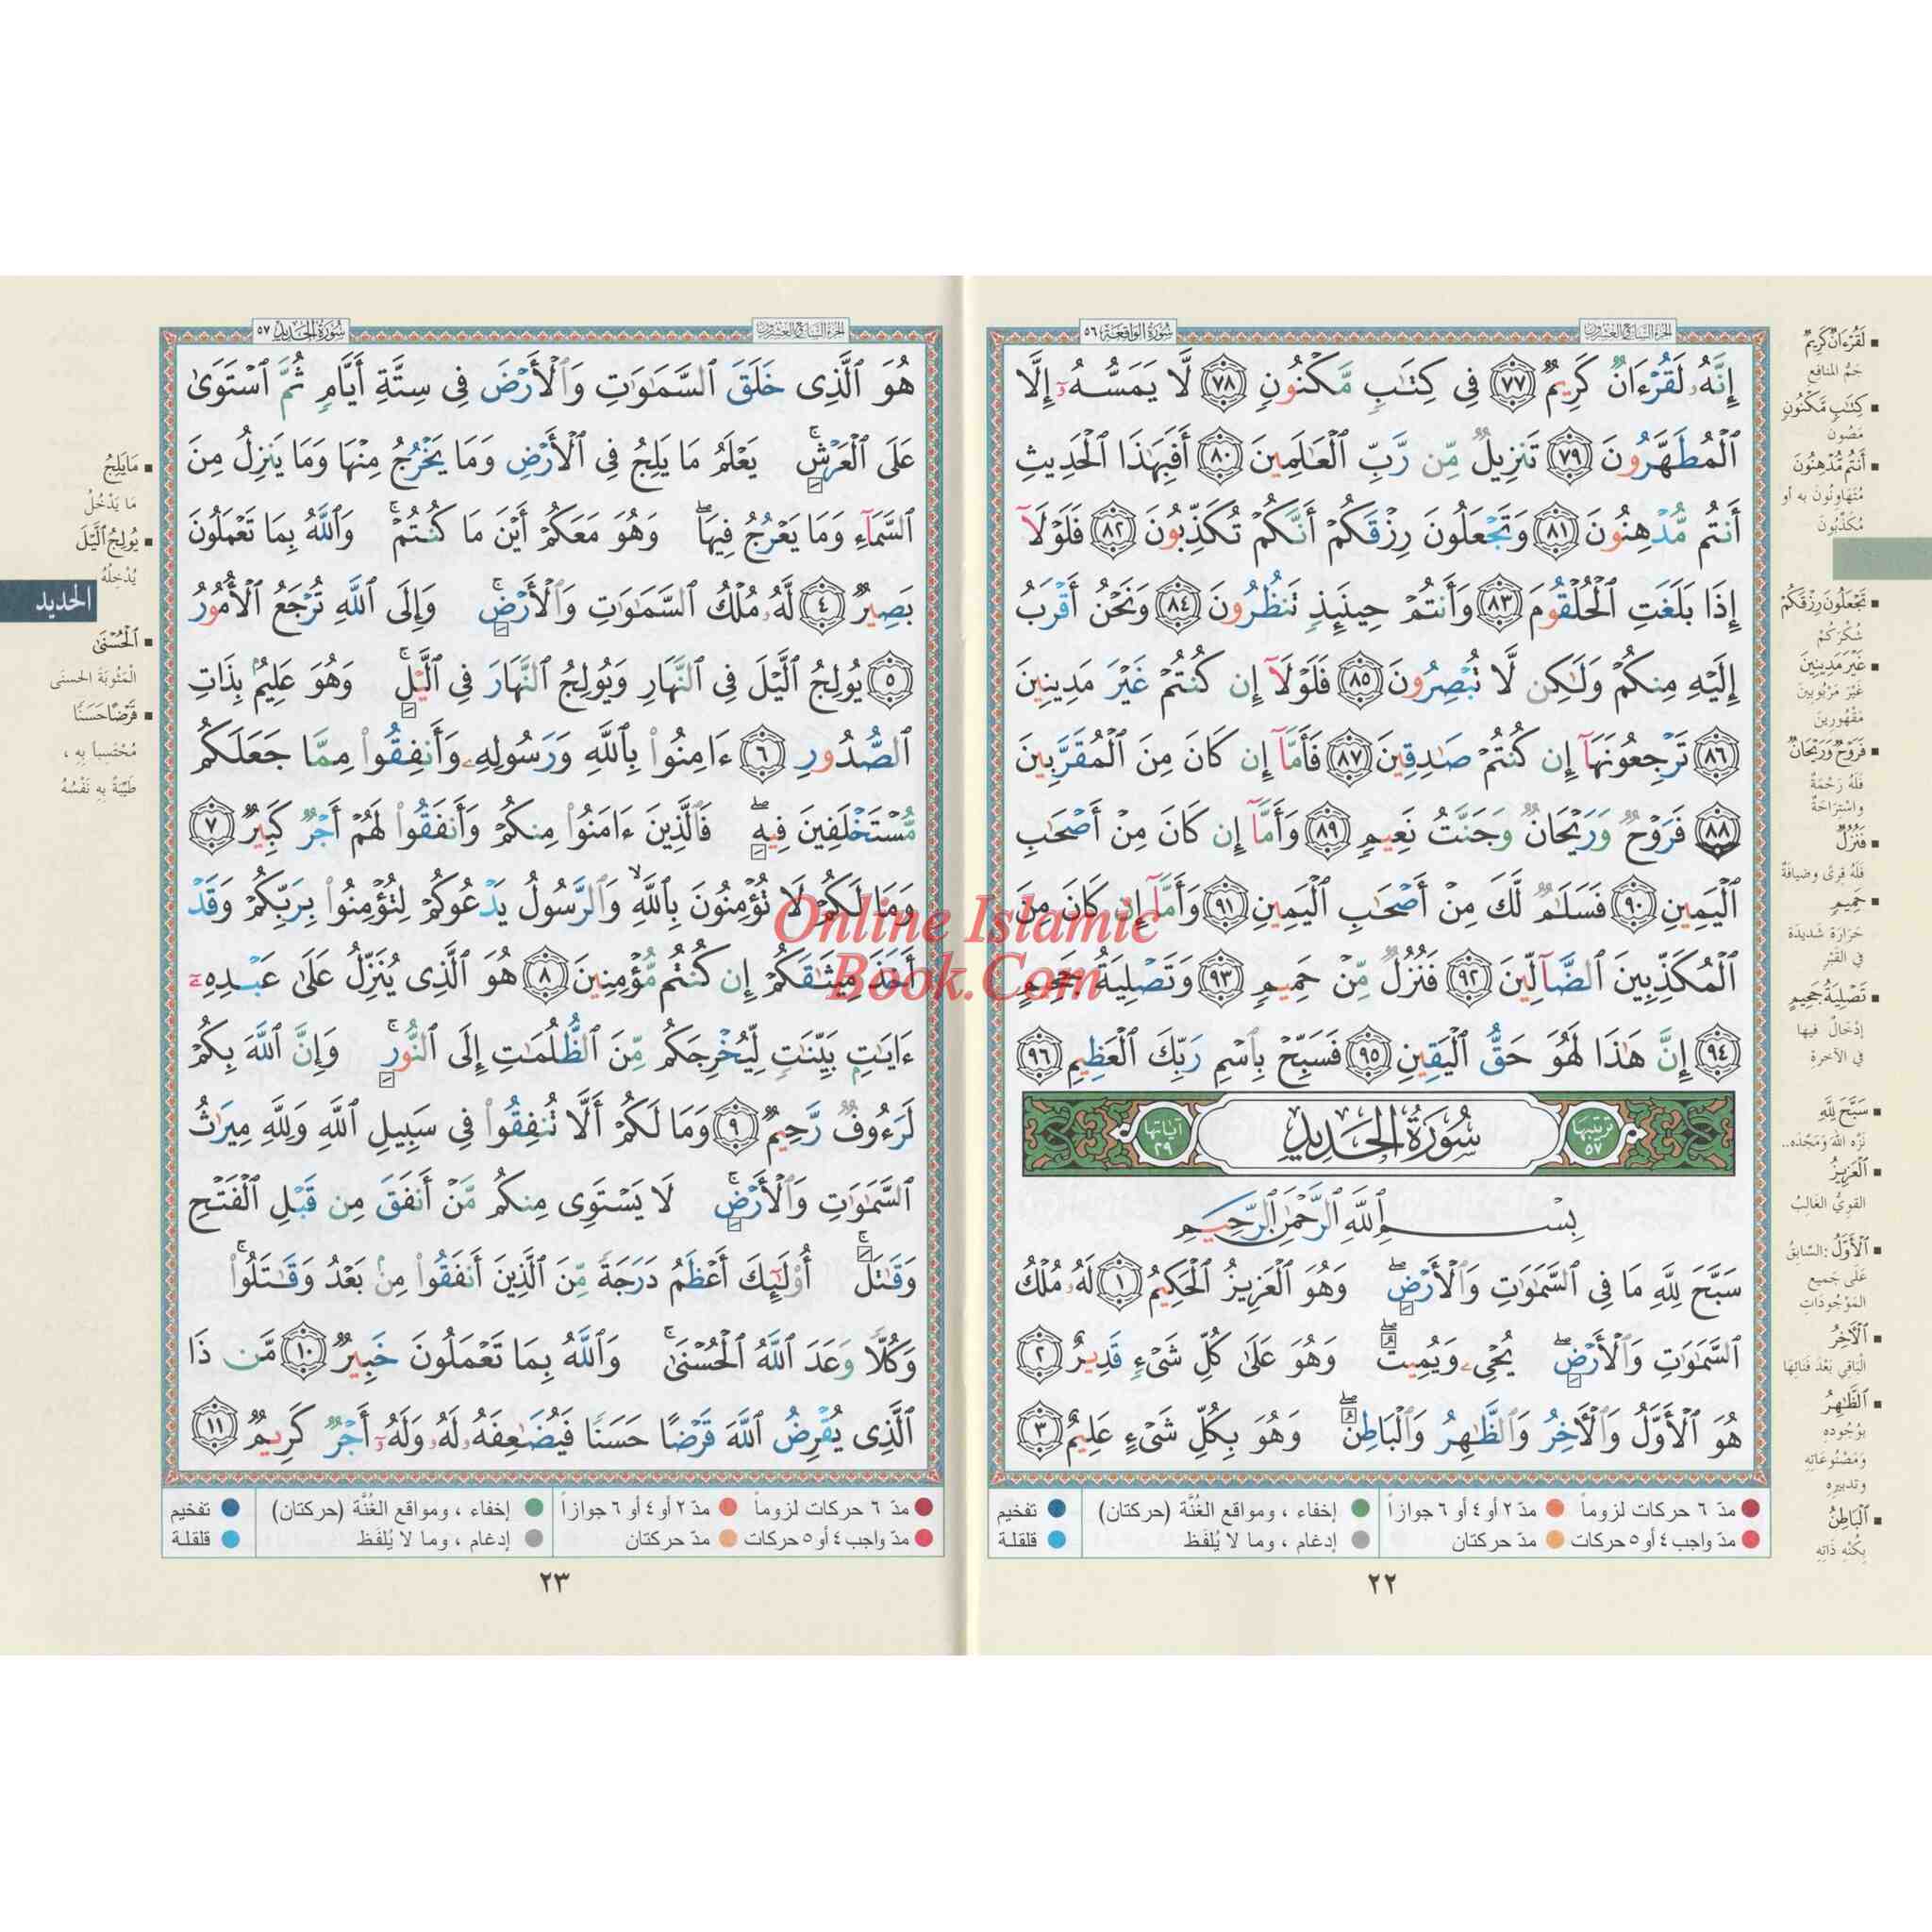 الجزء السابع والعشرون
سورة الواقعة ٥٦
إِنَّهُۥ لَقُرْءَانٌ كَرِيمٌ ٧٧ فِى كِتَٰبٍ مَّكْنُونٍ ٧٨ لَّا يَمَسُّهُۥٓ إِلَّا
ٱلْمُطَهَّرُونَ ٧٩ تَنزِيلٌ مِّن رَّبِّ ٱلْعَٰلَمِينَ ٨٠ أَفَبِهَٰذَا ٱلْحَدِيثِ
أَنتُم مُّدْهِنُونَ ٨١ وَتَجْعَلُونَ رِزْقَكُمْ أَنَّكُمْ تُكَذِّبُونَ ٨٢ فَلَوْلَآ
إِذَا بَلَغَتِ ٱلْحُلْقُومَ ٨٣ وَأَنتُمْ حِينَئِذٍ تَنظُرُونَ ٨٤ وَنَحْنُ أَقْرَبُ
إِلَيْهِ مِنكُمْ وَلَٰكِن لَّا تُبْصِرُونَ ٨٥ فَلَوْلَآ إِن كُنتُمْ غَيْرَ مَدِينِينَ
٨٦ تَرْجِعُونَهَآ إِن كُنتُمْ صَٰدِقِينَ ٨٧ فَأَمَّآ إِن كَانَ مِنَ ٱلْمُقَرَّبِينَ
٨٨ فَرَوْحٌ وَرَيْحَانٌ وَجَنَّتُ نَعِيمٍ ٨٩ وَأَمَّآ إِن كَانَ مِنْ أَصْحَٰبِ
ٱلْيَمِينِ ٩٠ فَسَلَٰمٌ لَّكَ مِنْ أَصْحَٰبِ ٱلْيَمِينِ ٩١ وَأَمَّآ إِن كَانَ مِنَ
ٱلْمُكَذِّبِينَ ٱلضَّآلِّينَ ٩٢ فَنُزُلٌ مِّنْ حَمِيمٍ ٩٣ وَتَصْلِيَةُ جَحِيمٍ
٩٤ إِنَّ هَٰذَا لَهُوَ حَقُّ ٱلْيَقِينِ ٩٥ فَسَبِّحْ بِٱسْمِ رَبِّكَ ٱلْعَظِيمِ ٩٦
ترتيبها ٥٧ سُورَةُ الحَدِيدِ آياتها ٢٩
بِسْمِ ٱللَّهِ ٱلرَّحْمَٰنِ ٱلرَّحِيمِ
سَبَّحَ لِلَّهِ مَا فِى ٱلسَّمَٰوَٰتِ وَٱلْأَرْضِ ۖ وَهُوَ ٱلْعَزِيزُ ٱلْحَكِيمُ ١ لَهُۥ مُلْكُ
ٱلسَّمَٰوَٰتِ وَٱلْأَرْضِ ۖ يُحْىِۦ وَيُمِيتُ ۖ وَهُوَ عَلَىٰ كُلِّ شَىْءٍ قَدِيرٌ ٢
هُوَ ٱلْأَوَّلُ وَٱلْءَاخِرُ وَٱلظَّٰهِرُ وَٱلْبَاطِنُ ۖ وَهُوَ بِكُلِّ شَىْءٍ عَلِيمٌ ٣
لَقُرْءَانٌ كَرِيمٌ
جَمُّ المنافع
كِتَٰبٍ مَّكْنُونٍ
مَصُون
أَنتُم مُّدْهِنُونَ
مُتَهَاوِنُونَ به أو
مُكَذِّبُونَ
تَجْعَلُونَ رِزْقَكُمْ
شُكْرَكُمْ
غَيْرَ مَدِينِينَ
غَيْرَ مَرْبُوبِينَ
مَقْهُورِينَ
فَرَوْحٌ وَرَيْحَانٌ
فَلَهُ رَحْمَةٌ
واسْتِرَاحَةٌ
فَنُزُلٌ
فَلَهُ قِرىً وضيافةٌ
حَمِيمٍ
حَرَارَة شَديدَة
في القَبْرِ
تَصْلِيَةُ جَحِيمٍ
إدْخَالٌ فيها
في الآخرة
سَبَّحَ لِلَّهِ
نَزَّه اللهَ وَمَجَّدَه..
ٱلْعَزِيزُ
القويُّ الغالِبُ
ٱلْأَوَّلُ: السَّابِقُ
عَلَى جَميع
المَوْجُودَاتِ
ٱلْءَاخِرُ
البَاقِي بَعْدَ فَنَائِهَا
ٱلظَّٰهِرُ
بِوُجُودِهِ
وَمَصْنُوعَاتِهِ
وتدبيره
ٱلْبَاطِنُ
بِكُنْهِ ذَاتِهِ
مدّ ٦ حركات لزوماً مدّ ٢ أو ٤ أو ٦ جوازاً إخفاء ، ومواقع الغُنَّة (حركتان) تفخيم
مدّ واجب ٤ أو ٥ حركات مدّ حركتان إدغام ، وما لا يُلفَظ قلقلة
٢٢
الجزء السابع والعشرون
سورة الحديد ٥٧
هُوَ ٱلَّذِى خَلَقَ ٱلسَّمَٰوَٰتِ وَٱلْأَرْضَ فِى سِتَّةِ أَيَّامٍ ثُمَّ ٱسْتَوَىٰ
عَلَى ٱلْعَرْشِ ۚ يَعْلَمُ مَا يَلِجُ فِى ٱلْأَرْضِ وَمَا يَخْرُجُ مِنْهَا وَمَا يَنزِلُ مِنَ
ٱلسَّمَآءِ وَمَا يَعْرُجُ فِيهَا ۖ وَهُوَ مَعَكُمْ أَيْنَ مَا كُنتُمْ ۚ وَٱللَّهُ بِمَا تَعْمَلُونَ
بَصِيرٌ ٤ لَّهُۥ مُلْكُ ٱلسَّمَٰوَٰتِ وَٱلْأَرْضِ ۚ وَإِلَى ٱللَّهِ تُرْجَعُ ٱلْأُمُورُ
٥ يُولِجُ ٱلَّيْلَ فِى ٱلنَّهَارِ وَيُولِجُ ٱلنَّهَارَ فِى ٱلَّيْلِ ۚ وَهُوَ عَلِيمٌۢ بِذَاتِ
ٱلصُّدُورِ ٦ ءَامِنُوا۟ بِٱللَّهِ وَرَسُولِهِۦ وَأَنفِقُوا۟ مِمَّا جَعَلَكُم
مُّسْتَخْلَفِينَ فِيهِ ۖ فَٱلَّذِينَ ءَامَنُوا۟ مِنكُمْ وَأَنفَقُوا۟ لَهُمْ أَجْرٌ كَبِيرٌ ٧
وَمَا لَكُمْ لَا تُؤْمِنُونَ بِٱللَّهِ ۙ وَٱلرَّسُولُ يَدْعُوكُمْ لِتُؤْمِنُوا۟ بِرَبِّكُمْ وَقَدْ
أَخَذَ مِيثَٰقَكُمْ إِن كُنتُم مُّؤْمِنِينَ ٨ هُوَ ٱلَّذِى يُنَزِّلُ عَلَىٰ عَبْدِهِۦٓ
ءَايَٰتٍۭ بَيِّنَٰتٍ لِّيُخْرِجَكُم مِّنَ ٱلظُّلُمَٰتِ إِلَى ٱلنُّورِ ۚ وَإِنَّ ٱللَّهَ بِكُمْ
لَرَءُوفٌ رَّحِيمٌ ٩ وَمَا لَكُمْ أَلَّا تُنفِقُوا۟ فِى سَبِيلِ ٱللَّهِ وَلِلَّهِ مِيرَٰثُ
ٱلسَّمَٰوَٰتِ وَٱلْأَرْضِ ۚ لَا يَسْتَوِى مِنكُم مَّنْ أَنفَقَ مِن قَبْلِ ٱلْفَتْحِ
وَقَٰتَلَ ۚ أُو۟لَٰٓئِكَ أَعْظَمُ دَرَجَةً مِّنَ ٱلَّذِينَ أَنفَقُوا۟ مِنۢ بَعْدُ وَقَٰتَلُوا۟ ۚ
وَكُلًّا وَعَدَ ٱللَّهُ ٱلْحُسْنَىٰ ۚ وَٱللَّهُ بِمَا تَعْمَلُونَ خَبِيرٌ ١٠ مَّن ذَا
ٱلَّذِى يُقْرِضُ ٱللَّهَ قَرْضًا حَسَنًا فَيُضَٰعِفَهُۥ لَهُۥ وَلَهُۥٓ أَجْرٌ كَرِيمٌ ١١
مَا يَلِجُ
مَا يَدْخُلُ
يُولِجُ ٱلَّيْلَ
يُدْخِلُهُ
الحديد
ٱلْحُسْنَىٰ
المَثُوبَةَ الحسنَى
قَرْضًا حَسَنًا
مُحْتَسِباً بِهِ ،
طَيِّبَةً بِهِ نَفْسُهُ
مدّ ٦ حركات لزوماً مدّ ٢ أو ٤ أو ٦ جوازاً إخفاء ، ومواقع الغُنَّة (حركتان) تفخيم
مدّ واجب ٤ أو ٥ حركات مدّ حركتان إدغام ، وما لا يُلفَظ قلقلة
٢٣
Online Islamic
Book.Com